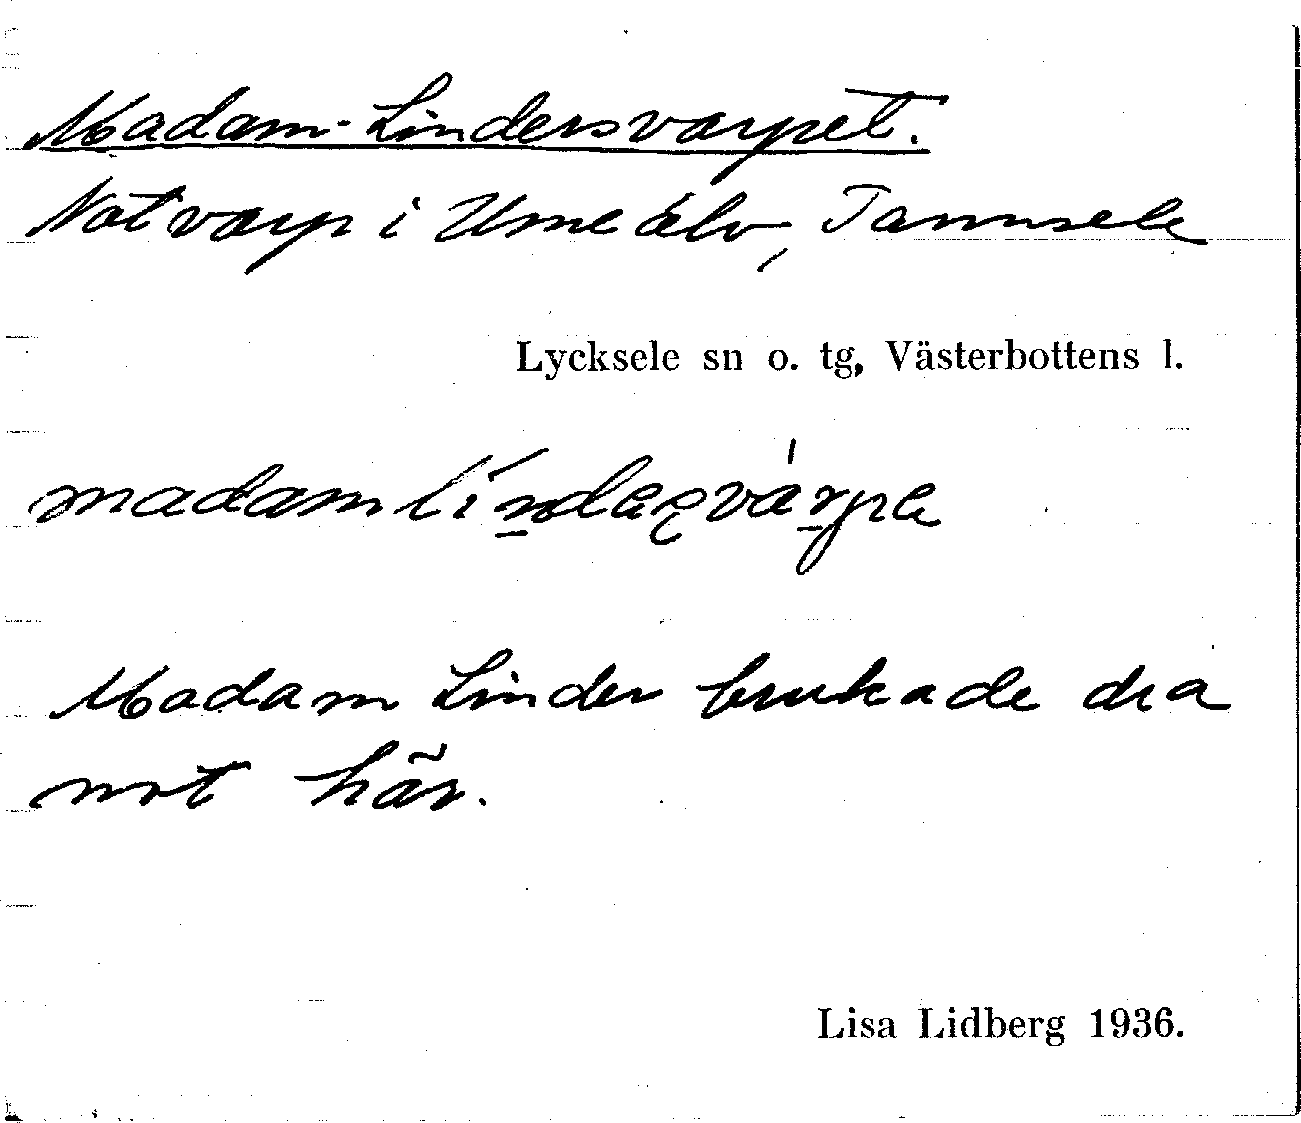 Madam-Lindersvarpet.
Notvarp i Ume älv, Tannsele
Lycksele sn o. tg, Västerbottens l.
madam
Madam Linder brukade dra
not här.
Lisa Lidberg 1936.